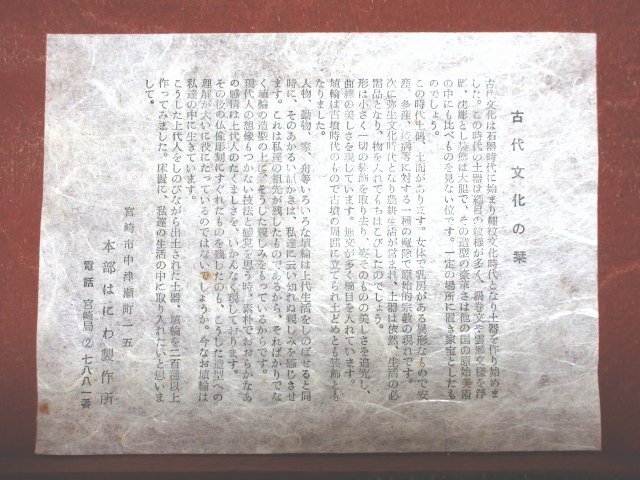 古代文化の栞
古代文化は石器時代に始まり縄文文化時代となり土器を作り始めま
した。この時代の土器は縄目の紋様が多く、渦巻文や雲形文様を浮
彫、沈彫とした装飾は大胆で、その造型の豪華さは他の国の原始美術
の中にも比べものを見ない位です。一定の場所に置き家宝としたも
のでしょう。
この時代土偶、土面があります。女体で乳房がある異形なもので安
産、多産、疫病等に対する一種の魔除で原始的宗教の現れです。
次に弥生文化時代となり農耕生活が営まれ、土器は依然、生活の必
需品となり、物を入れてもちはこびしたのでしょう。
形は小さく一切の装飾を取り去り、姿そのものの美しさを追究し、
曲線の美しさを現しています。無文が多く櫛目を入れています。
埴輪は古墳時代のもので古墳の周囲に立てられ土どめとも装飾とも
なりました。
人物、動物、家、舟等いろいろな埴輪は上代生活をしのばせると同
時に、そのあかるい素朴さは、私達に云い知れぬ親しみを感じさせ
ます。これは私達の祖先が残したものであるから、そればかりでな
く埴輪の造型の上に、そうした親しみをもっているからです。
現代人の想像もつかない技法と感覚を思う時、素朴でおおらかなあ
の感情は上代人のたくましさを、いかんなく現しております。
その後の仏像彫刻にすぐれたものを残したのも、こうした造型への
理解が大いに役にたっているのではないでしょうか。今なお埴輪は
私達の中に生きています。
こうした上代人をしのびながら出土された土器、埴輪を二百種以上
作ってみました。床置に 私達の生活の中に取り入れたいと思いま
して。
宮崎市中津瀬町一五
本部はにわ製作所
電話 宮崎局②七八八一番